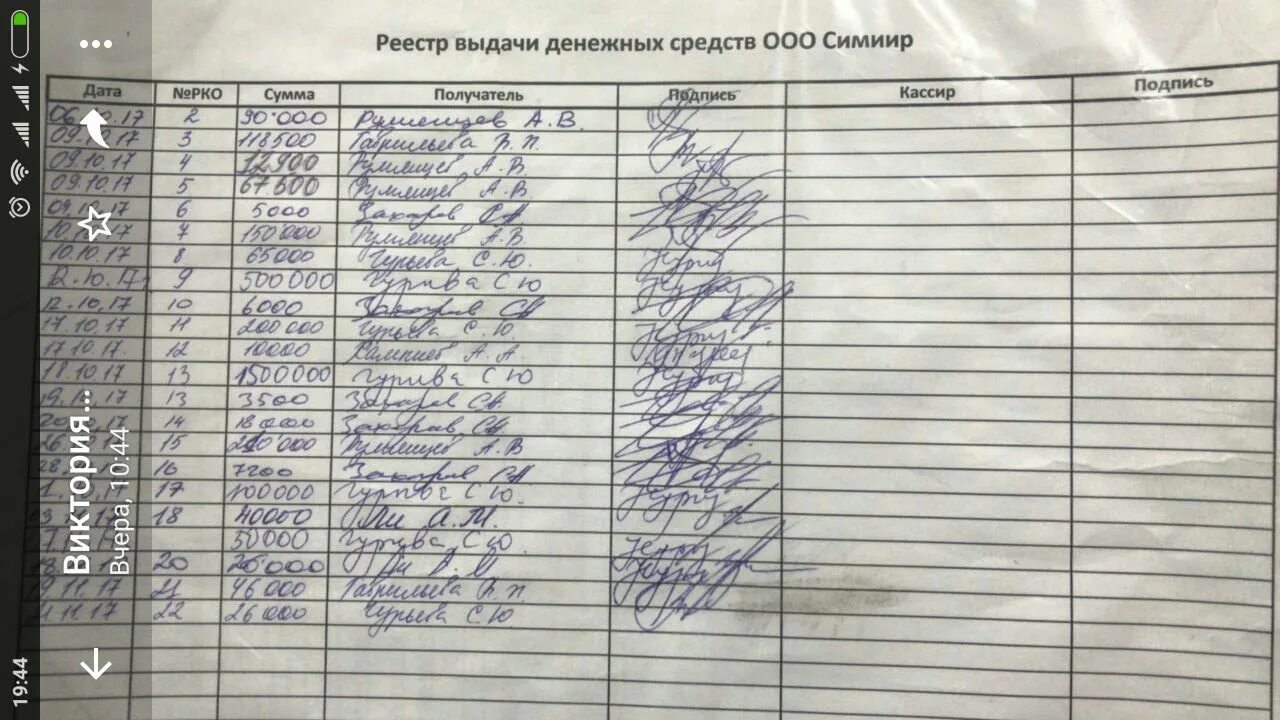 Реестр выдачи денежных средств ООО Симиир
Дата №РКО Сумма Получатель Подпись Кассир Подпись
06.10.17 2 90.000 Румянцев А.В.
09.10.17 3 118500 Гаврильева
09.10.17 4 12.900 Румянцев А.В.
09.10.17 5 67.500 Румянцев А.В.
09.10.17 6 5000 Захаров
10.10.17 7 150000 Румянцев А.В
10.10.17 8 65000 Гурьева С.Ю.
12.10.17 9 500000 С Ю
12.10.17 10 6000 Захаров
17.10.17 11 200000 Гурьева С.Ю.
17.10.17 12 10000 А.А
18.10.17 13 1500000 С Ю
13 3500 Захаров
14 18000 Захаров
15 Румянцев А.В
16 7200 Захаров
17 100000 С Ю.
18 40000 Ли А.М.
50000 С Ю
20 Ли
11.17 21 46000 Гаврильева
11.17 22 26000 Гурьева С.Ю
Виктория...
Вчера, 10:44
19:44